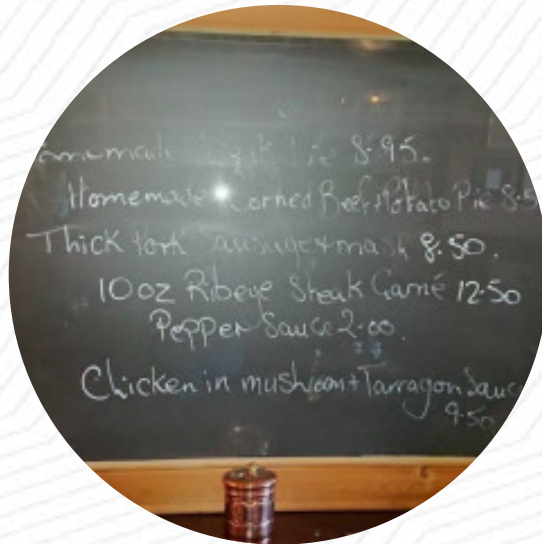 8.95.
Homemade Corned Beef + Potato Pie
Thick Pork sausage + mash 8.50.
10oz Ribeye Steak Garné 12.50
Pepper Sauce 2.00.
Chicken in mushroom + Tarragon Sauc
9.50